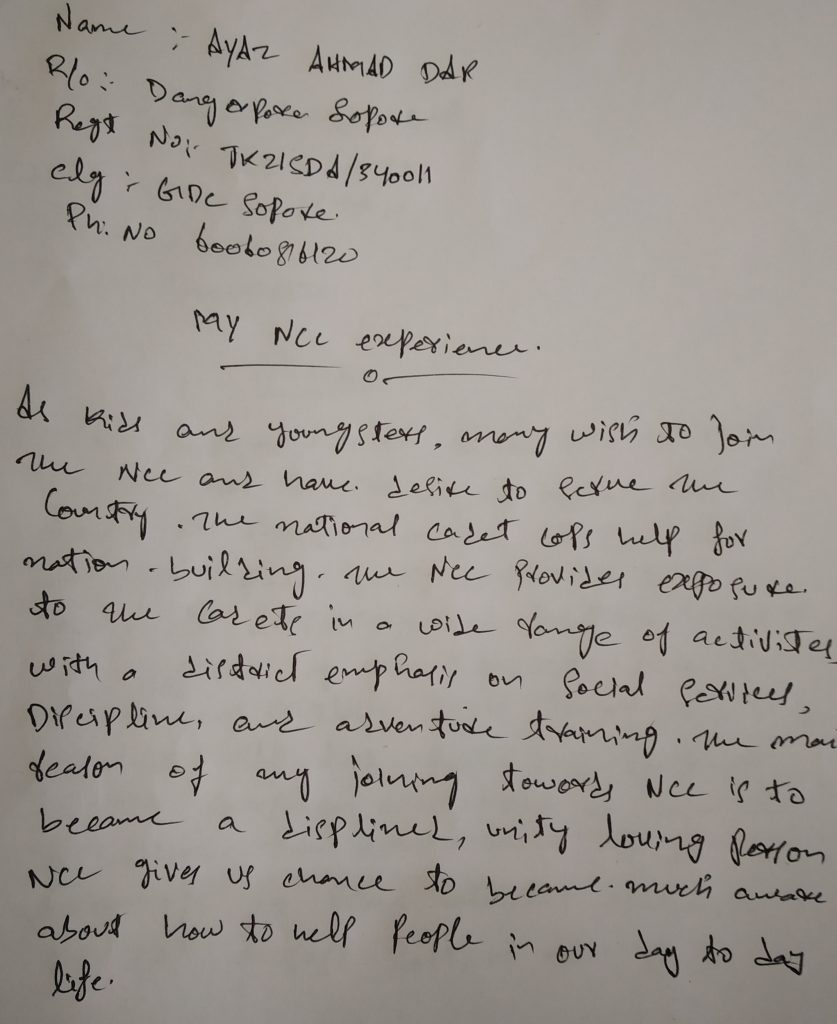 Name :- AYAZ AHMAD DAR
R/o :- Dangerpora Sopore
Regt No:- JK21SDA/340011
clg :- GDC Sopore.
Ph: No 6006086120
My NCC experience.
As kids and youngsters, many wish to Join
the NCC and have desire to serve the
Country. The national cadet cops help for
nation-building. The NCC provides exposure
to the Cadets in a wide range of activites
with a district emphasis on Social Services,
Discipline, and adventure training. The main
reason of my joining towards NCC is to
became a displined, unity loving Person
NCC gives us chance to became much aware
about how to help People in our day to day
life.